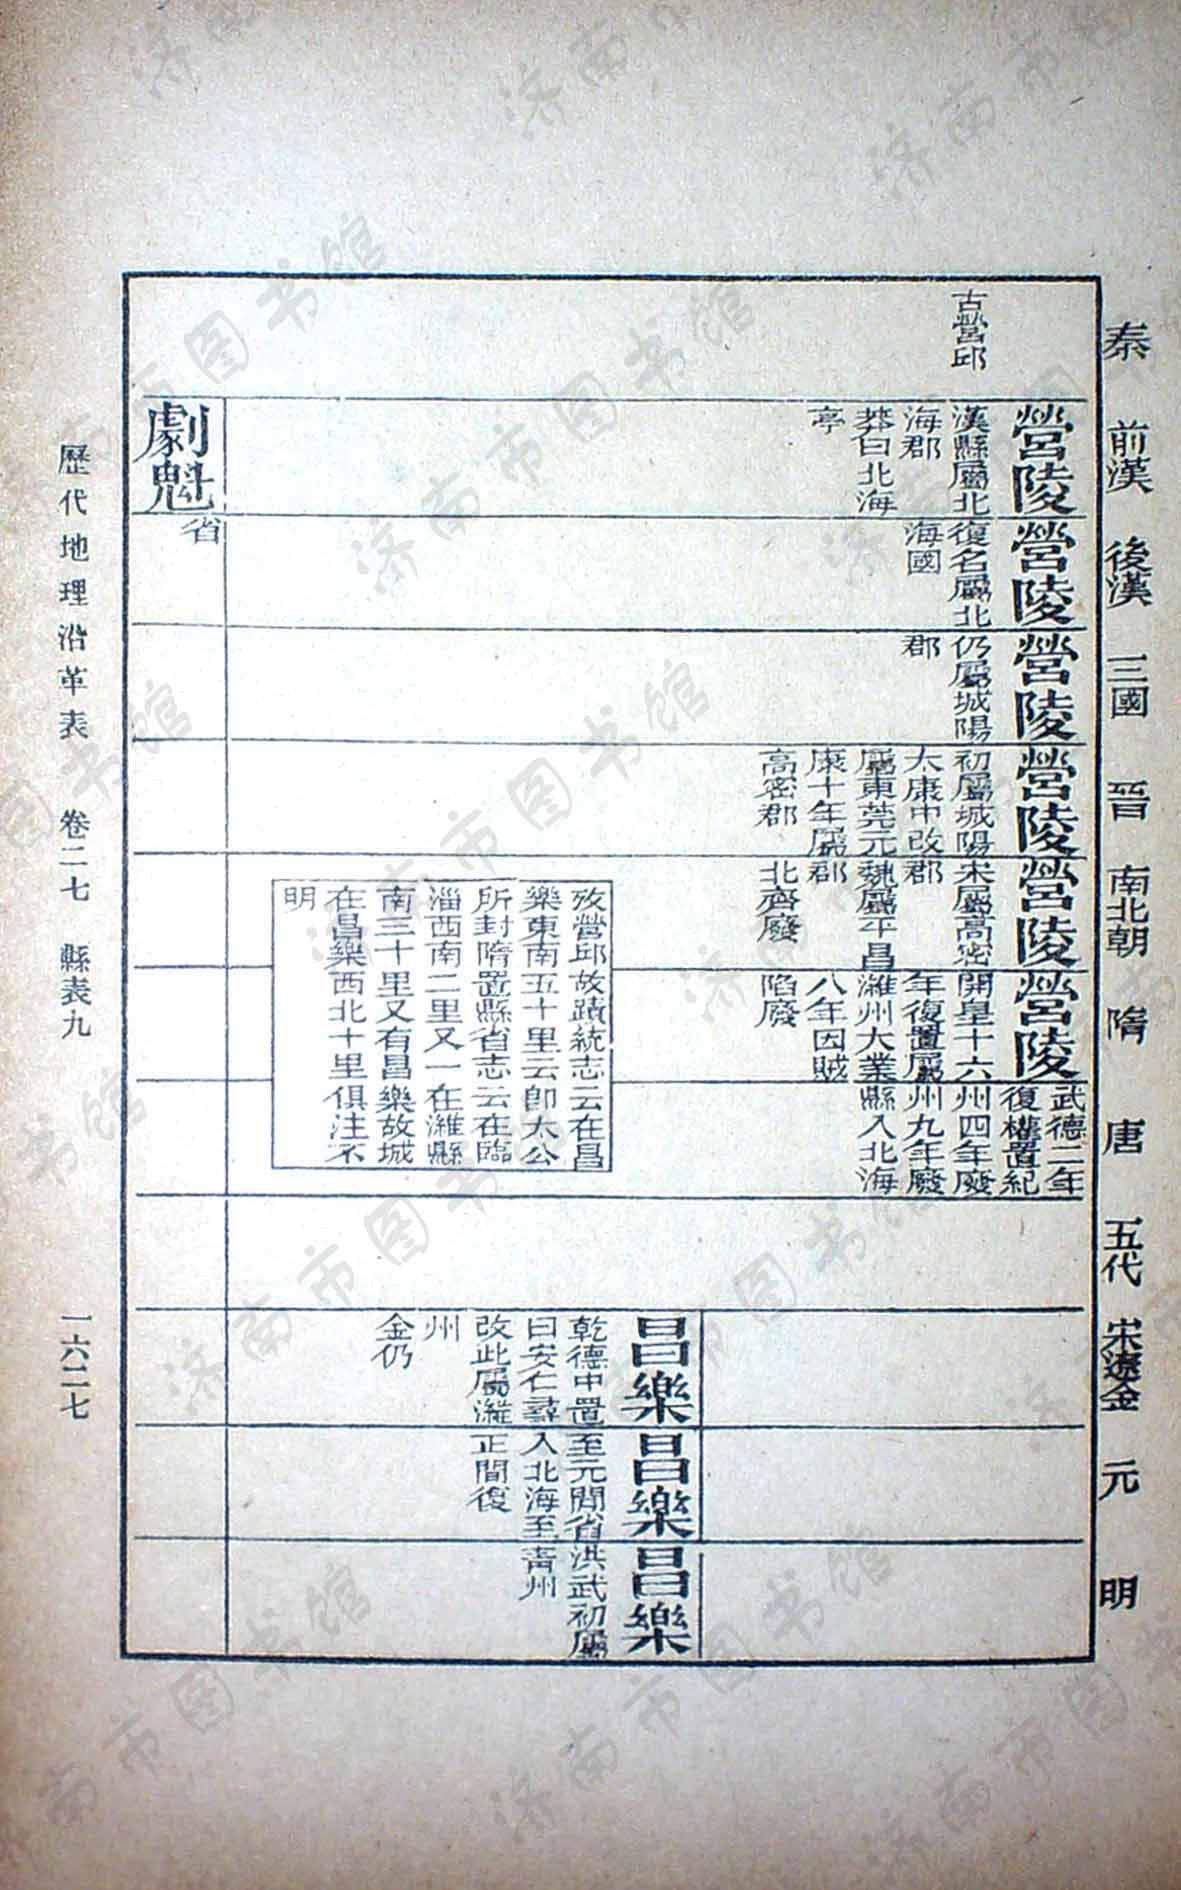 秦
前漢
後漢
三國
晉
南北朝
隋
唐
五代
宋遼金
元
明
古營邱
營陵
漢縣屬北
海郡
莽曰北海
亭
營陵
復名屬北
海國
營陵
仍屬城陽
郡
營陵
初屬城陽
太康中改
屬東莞元
康十年屬
高密郡
營陵
宋屬高密
郡
魏屬平昌
郡
北齊廢
營陵
開皇十六
年復置屬
濰州大業
八年因賊
陷廢
武德二年
復權置紀
州四年廢
州九年廢
縣入北海
昌樂
乾德中置
曰安仁尋
改此屬濰
州
金仍
昌樂
至元間省
入北海至
正間復
昌樂
洪武初屬
青州
攷營邱故蹟統志云在昌
樂東南五十里云卽太公
所封隋置縣省志云在臨
淄西南二里又一在濰縣
南三十里又有昌樂故城
在昌樂西北十里俱注不
明
劇魁
省
歷代地理沿革表 卷二七 縣表九 一六二七
济南市图书馆